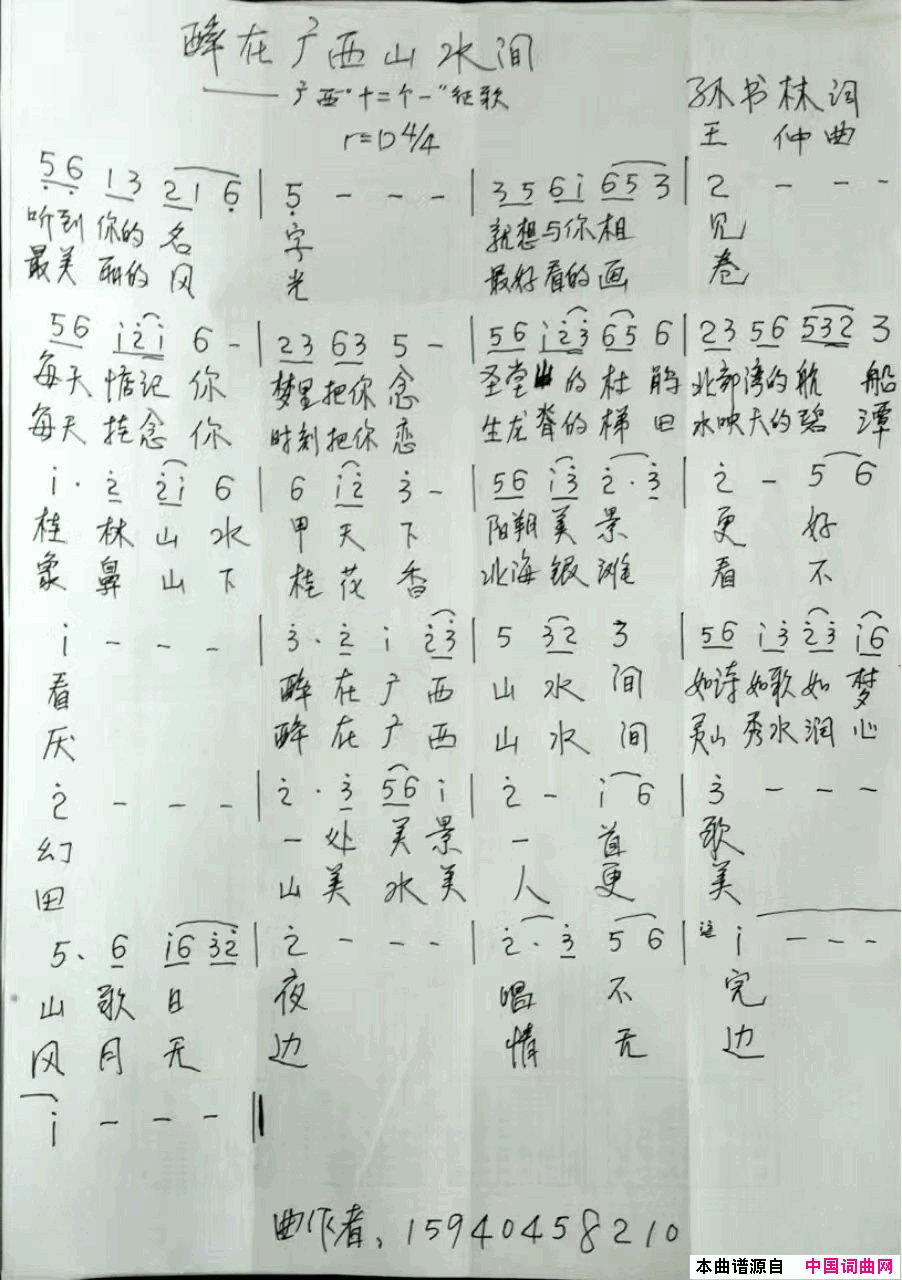 醉在广西山水间
——广西"十二个一"征歌
孙书林词
r=D 4/4
王 仲曲
56 13 216 | 5 - - - | 35 6i 653 | 2 - - -
听到 你的 名 字 就想与你相 见
最美 丽的 风 光 最好看的画 卷
56 i2i 6 - | 23 63 5 - | 56 i23 65 6 | 23 56 532 3
每天 惦记 你 梦里把你 念 圣堂山的杜鹃 北部湾的航 船
每天 挂念 你 时刻把你 恋 生龙脊的梯田 水映天的碧 潭
i· 2 2i 6 | 6 i2 3 - | 56 i3 2·3 | 2 - 5 6
桂林山水 甲天下 阳朔美景 更好
象鼻山下 桂花香 北海银滩 看不
i - - - | 3·2 i 23 | 5 32 3 | 56 i3 23 i6
看 醉在广西 山水间 如诗如歌如梦
厌 醉在广西 山水间 灵山秀水润心
2 - - - | 2·3 56 i | 2 - i 6 | 3 - - -
幻 一处美景 一首 歌
田 山美水美 人更 美
5· 6 i6 32 | 2 - - - | 2·3 5 6 | i - - -
山歌日 夜 唱不 完
风月无 边 情无 边
i - - - |
曲作者:15940458210
本曲谱源自 中国词曲网